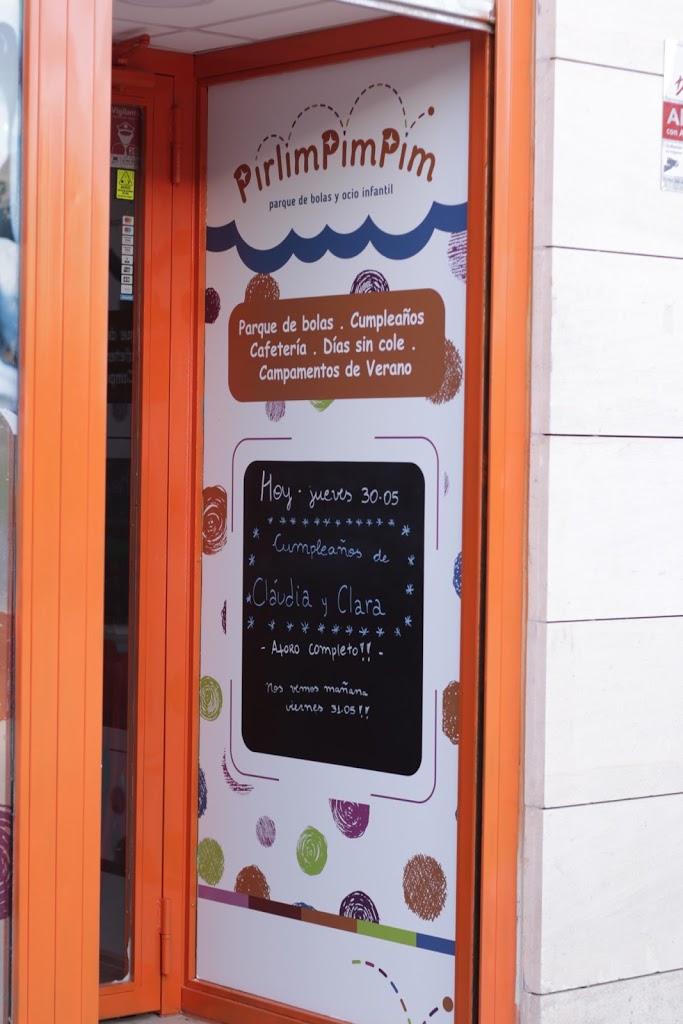 PirlimPimPim
parque de bolas y ocio infantil
Parque de bolas . Cumpleaños
Cafetería . Días sin cole .
Campamentos de Verano
Hoy · jueves 30·05
Cumpleaños de
Cláudia y Clara
- Aforo completo!! -
Nos vemos mañana
viernes 31·05!!